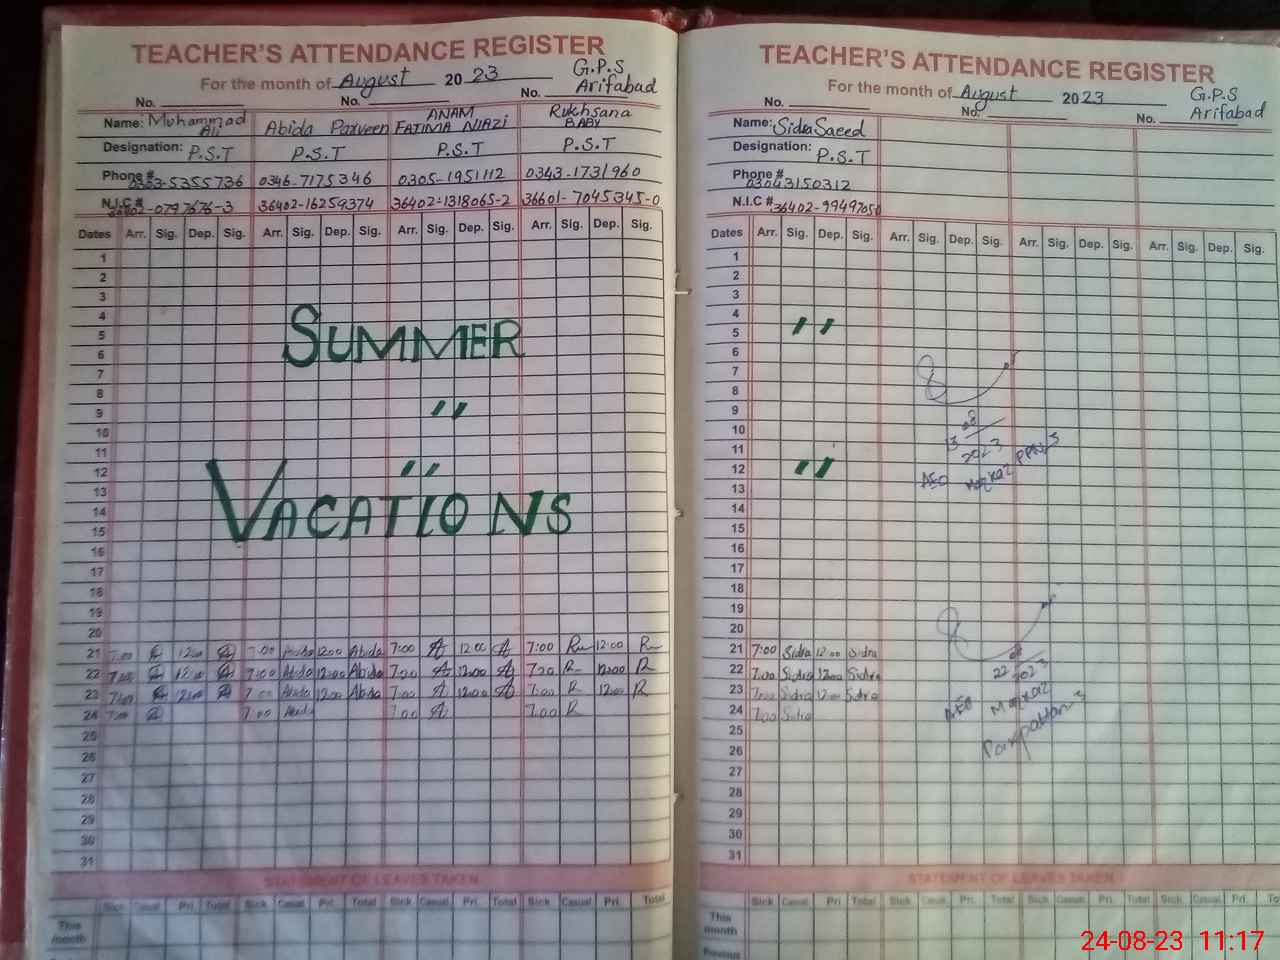 TEACHER'S ATTENDANCE REGISTER
For the month of August 2023 G.P.S Arifabad
No. No. No.
Name: Muhammad Ali Abida Parveen ANAM FATIMA NIAZI Rukhsana BABY
Designation: P.S.T P.S.T P.S.T P.S.T
Phone # 0303-5355736 0346-7175346 0305-1951112 0343-1731960
N.I.C # 36402-16259374 36402-1318065-2 36601-7045345-0
Dates Arr. Sig. Dep. Sig. Arr. Sig. Dep. Sig. Arr. Sig. Dep. Sig. Arr. Sig. Dep. Sig.
1
2
3
4
5
6
7
8
9
10
11
12
13
14
15
16
17
18
19
20
SUMMER
"
"
VACATIONS
21 7:00 12:00 7:00 Abida 12:00 Abida 7:00 12:00 7:00 R 12:00 R
22 7:00 12:00 7:00 Abida 12:00 Abida 7:00 12:00 7:00 R 12:00 R
23 7:00 12:00 7:00 Abida 12:00 Abida 7:00 12:00 7:00 R 12:00 R
24 7:00 7:00 Abida 7:00 7:00 R
25
26
27
28
29
30
31
STATEMENT OF LEAVES TAKEN
Sick Casual Pri. Total Sick Casual Pri. Total Sick Casual Pri. Total Sick Casual Pri. Total
This month
TEACHER'S ATTENDANCE REGISTER
For the month of August 2023 G.P.S Arifabad
No. No. No.
Name: Sidra Saeed
Designation: P.S.T
Phone # 03043150312
N.I.C #
Dates Arr. Sig. Dep. Sig. Arr. Sig. Dep. Sig. Arr. Sig. Dep. Sig. Arr. Sig. Dep. Sig.
1
2
3
4
5
6
7
8
9
10
11
12
13
14
15
16
17
18
19
20
"
"
13 08
2023
AEO Markaz PPN 3
21 7:00 Sidra 12:00 Sidra
22 7:00 Sidra 12:00 Sidra
23 7:00 Sidra 12:00 Sidra
24 7:00 Sidra
22 08 2023
AEO Markaz
Pakpattan 3
25
26
27
28
29
30
31
STATEMENT OF LEAVES TAKEN
Sick Casual Pri. Total Sick Casual Pri. Total Sick Casual Pri. Total Sick Casual Pri.
This month
Previous
24-08-23 11:17